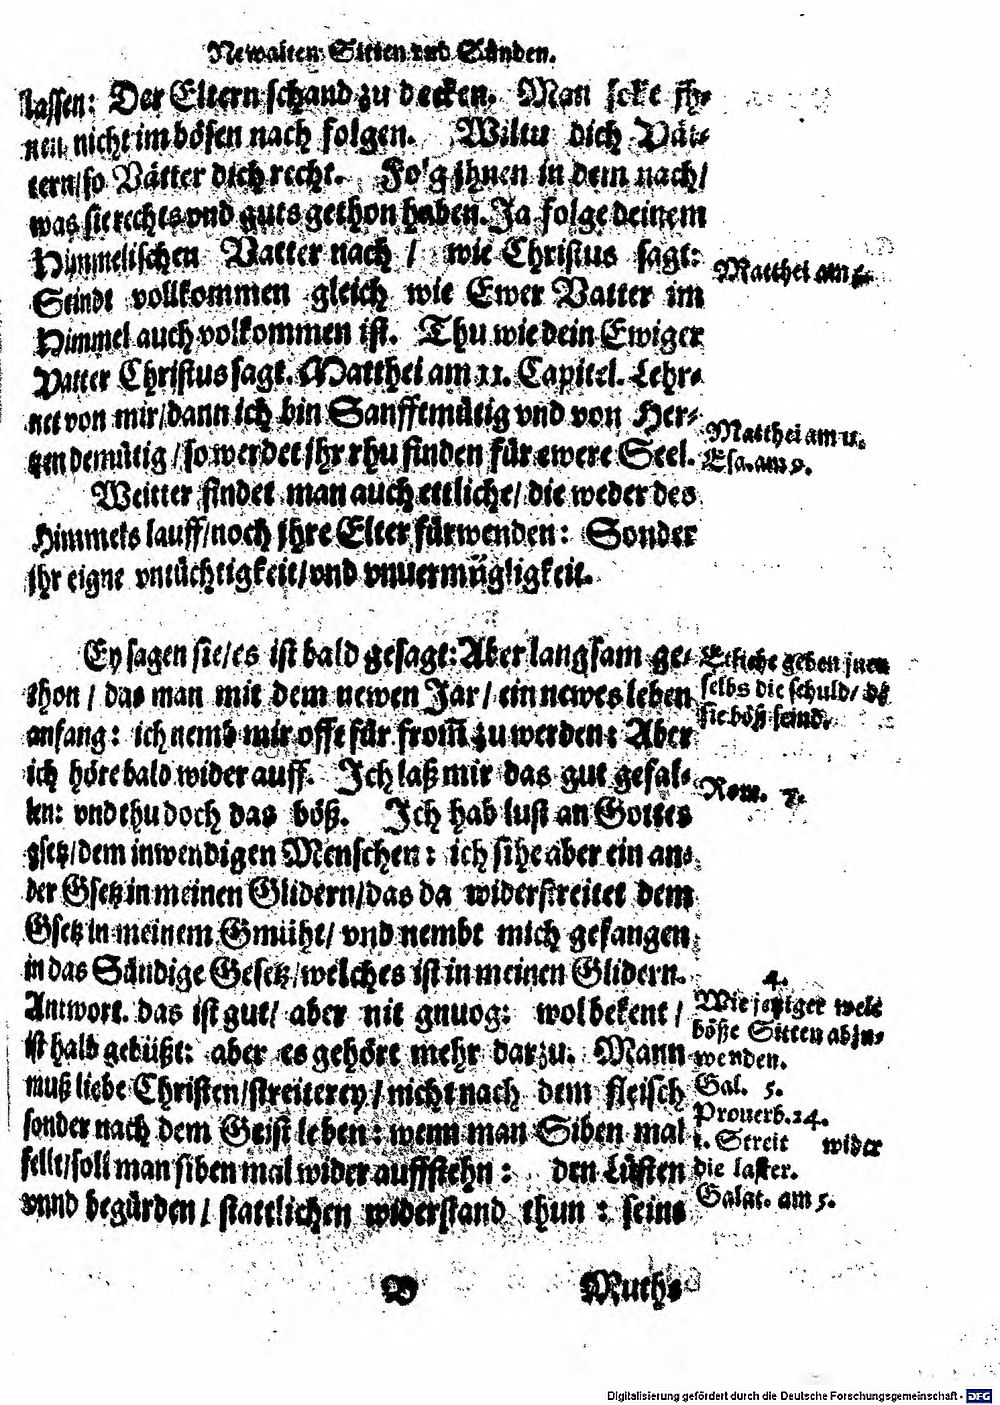 Newalten Sitten vnd Sünden.
lassen: Der Eltern schand zu decken. Man solle jh-
nen nicht im bösen nach folgen. Wiltu dich Vät-
tern/so Vätter dich recht. Folg jhnen in dem nach/
was sie rechts vnd guts gethon haben. Ja folge deinem
Himmelischen Vatter nach / wie Christus sagt:
Seindt vollkommen gleich wie Ewer Vatter im
Himmel auch volkommen ist. Thu wie dein Ewiger
Vatter Christus sagt. Matthei am 11. Capitel. Lehr-
net von mir/dann ich bin Sanfftmütig vnd von Her-
tzen demütig /so werdet jhr rhu finden für ewere Seel.
Matthei am 5.
Matthei am 11.
Esa. am 9.
Weitter findet man auch ettliche/ die weder des
Himmels lauff/noch jhre Elter fürwenden: Sonder
jhr eigne vntüchtigkeit/vnd vnuermügligkeit.
Ey sagen sie/es ist bald gesagt: Aber langsam ge-
thon / das man mit dem newen Jar / ein newes leben
anfang: ich nemb mir offt für from̃ zu werden: Aber
ich höre bald wider auff. Ich laß mir das gut gefal-
len: vnd thu doch das böß. Ich hab lust an Gottes
gsetz/dem inwendigen Menschen: ich sihe aber ein an-
der Gsetz in meinen Glidern/das da widerstreitet dem
Gsetz in meinem Gmüht/ vnd nembt mich gefangen
in das Sündige Gesetz/welches ist in meinen Glidern.
Antwort. das ist gut/ aber nit gnuog: wol bekent /
ist halb gebüßt: aber es gehört mehr darzu. Mann
muß liebe Christen/streiterey/ nicht nach dem fleisch
sonder nach dem Geist leben: wenn man Siben mal
fellt/soll man siben mal wider auffstehn: den Lüsten
vnnd begürden / stattlichen widerstand thun : seine
Etliche geben jnen
selbs die schuld/ dz
sie böß seind.
Rom. 7.
4.
Wie jeniger welt
böße Sitten abzu-
wenden.
Gal. 5.
Prouerb. 24.
1. Streit wider
die laster.
Galat. am 5.
D
Ruth-
Digitalisierung gefördert durch die Deutsche Forschungsgemeinschaft - DFG